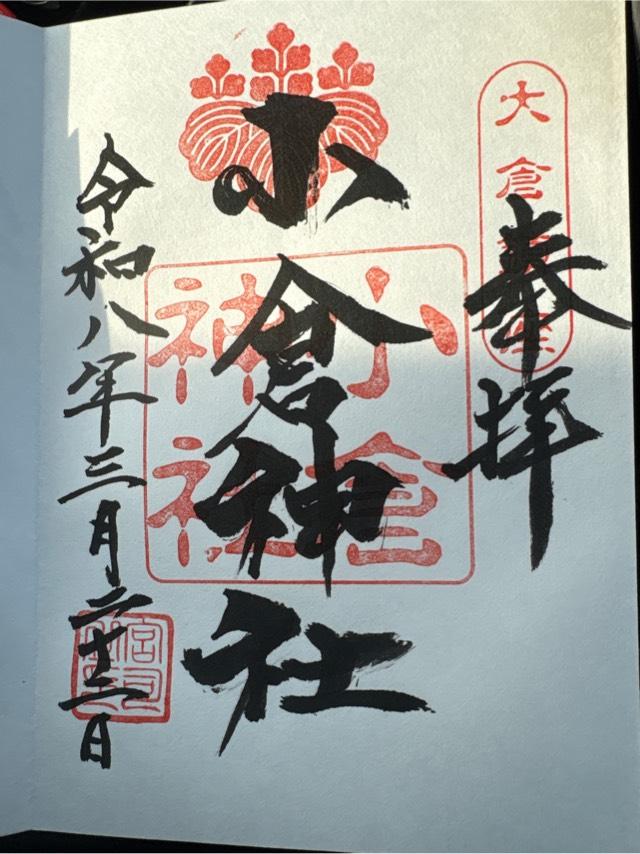 大倉
奉拝
小倉神社
小倉神社
令和八年三月二十三日
宮司